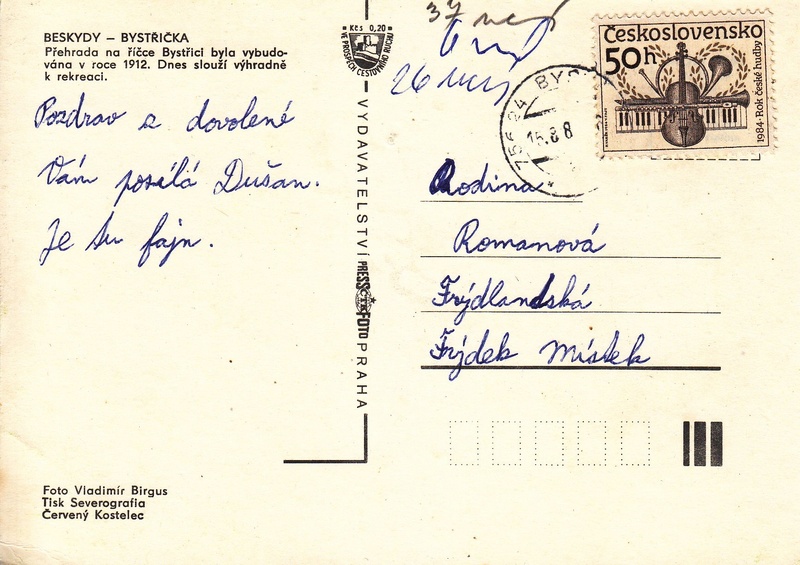 BESKYDY – BYSTŘIČKA
Přehrada na říčce Bystřici byla vybudo-
vána v roce 1912. Dnes slouží výhradně
k rekreaci.
Pozdrav z dovolené
Vám posílá Dušan.
Je tu fajn.
Foto Vladimír Birgus
Tisk Severografia
Červený Kostelec
Kčs 0,20
VE PROSPĚCH CESTOVNÍHO RUCHU
VYDAVATELSTVÍ PRESSFOTO PRAHA
ČTK
37
26
756 24
15.8.8
Československo
50h
1984 · Rok české hudby
Rodina
Romanová
Frýdlandská
Frýdek Místek